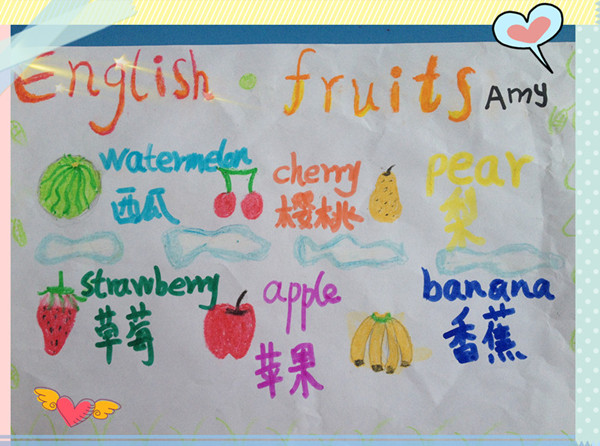 English · fruits Amy
watermelon cherry pear
西瓜 樱桃 梨
strawberry apple banana
草莓 苹果 香蕉